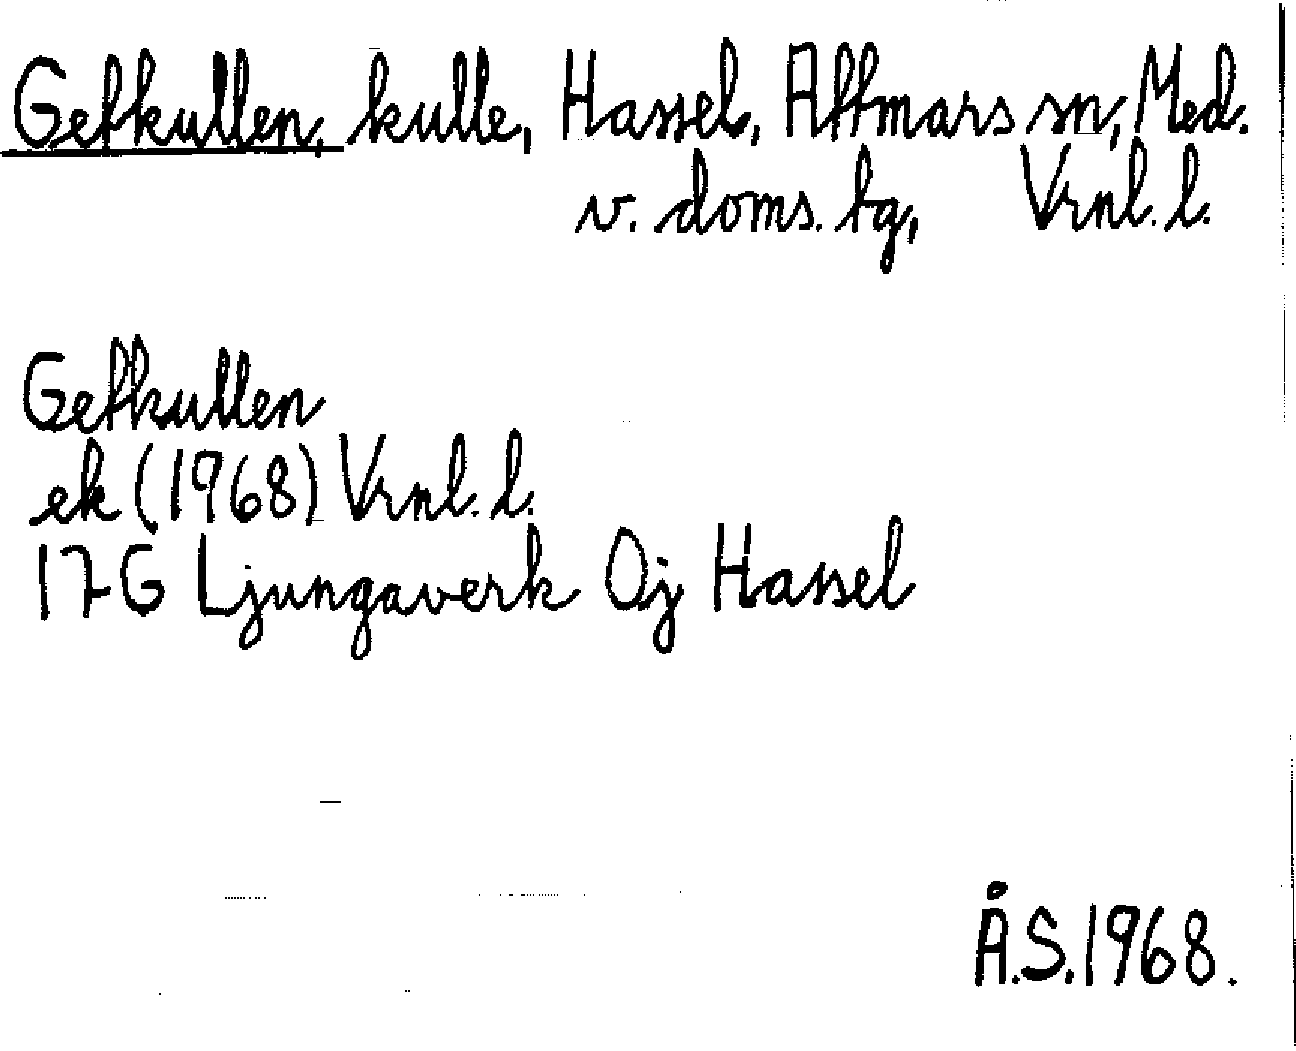 Getkullen, kulle, Hassel, Attmars sn, Med.
v. doms. tg, Vrnl. l.
Getkullen
ek (1968) Vrnl. l.
17G Ljungaverk 0j Hassel
Å.S. 1968.